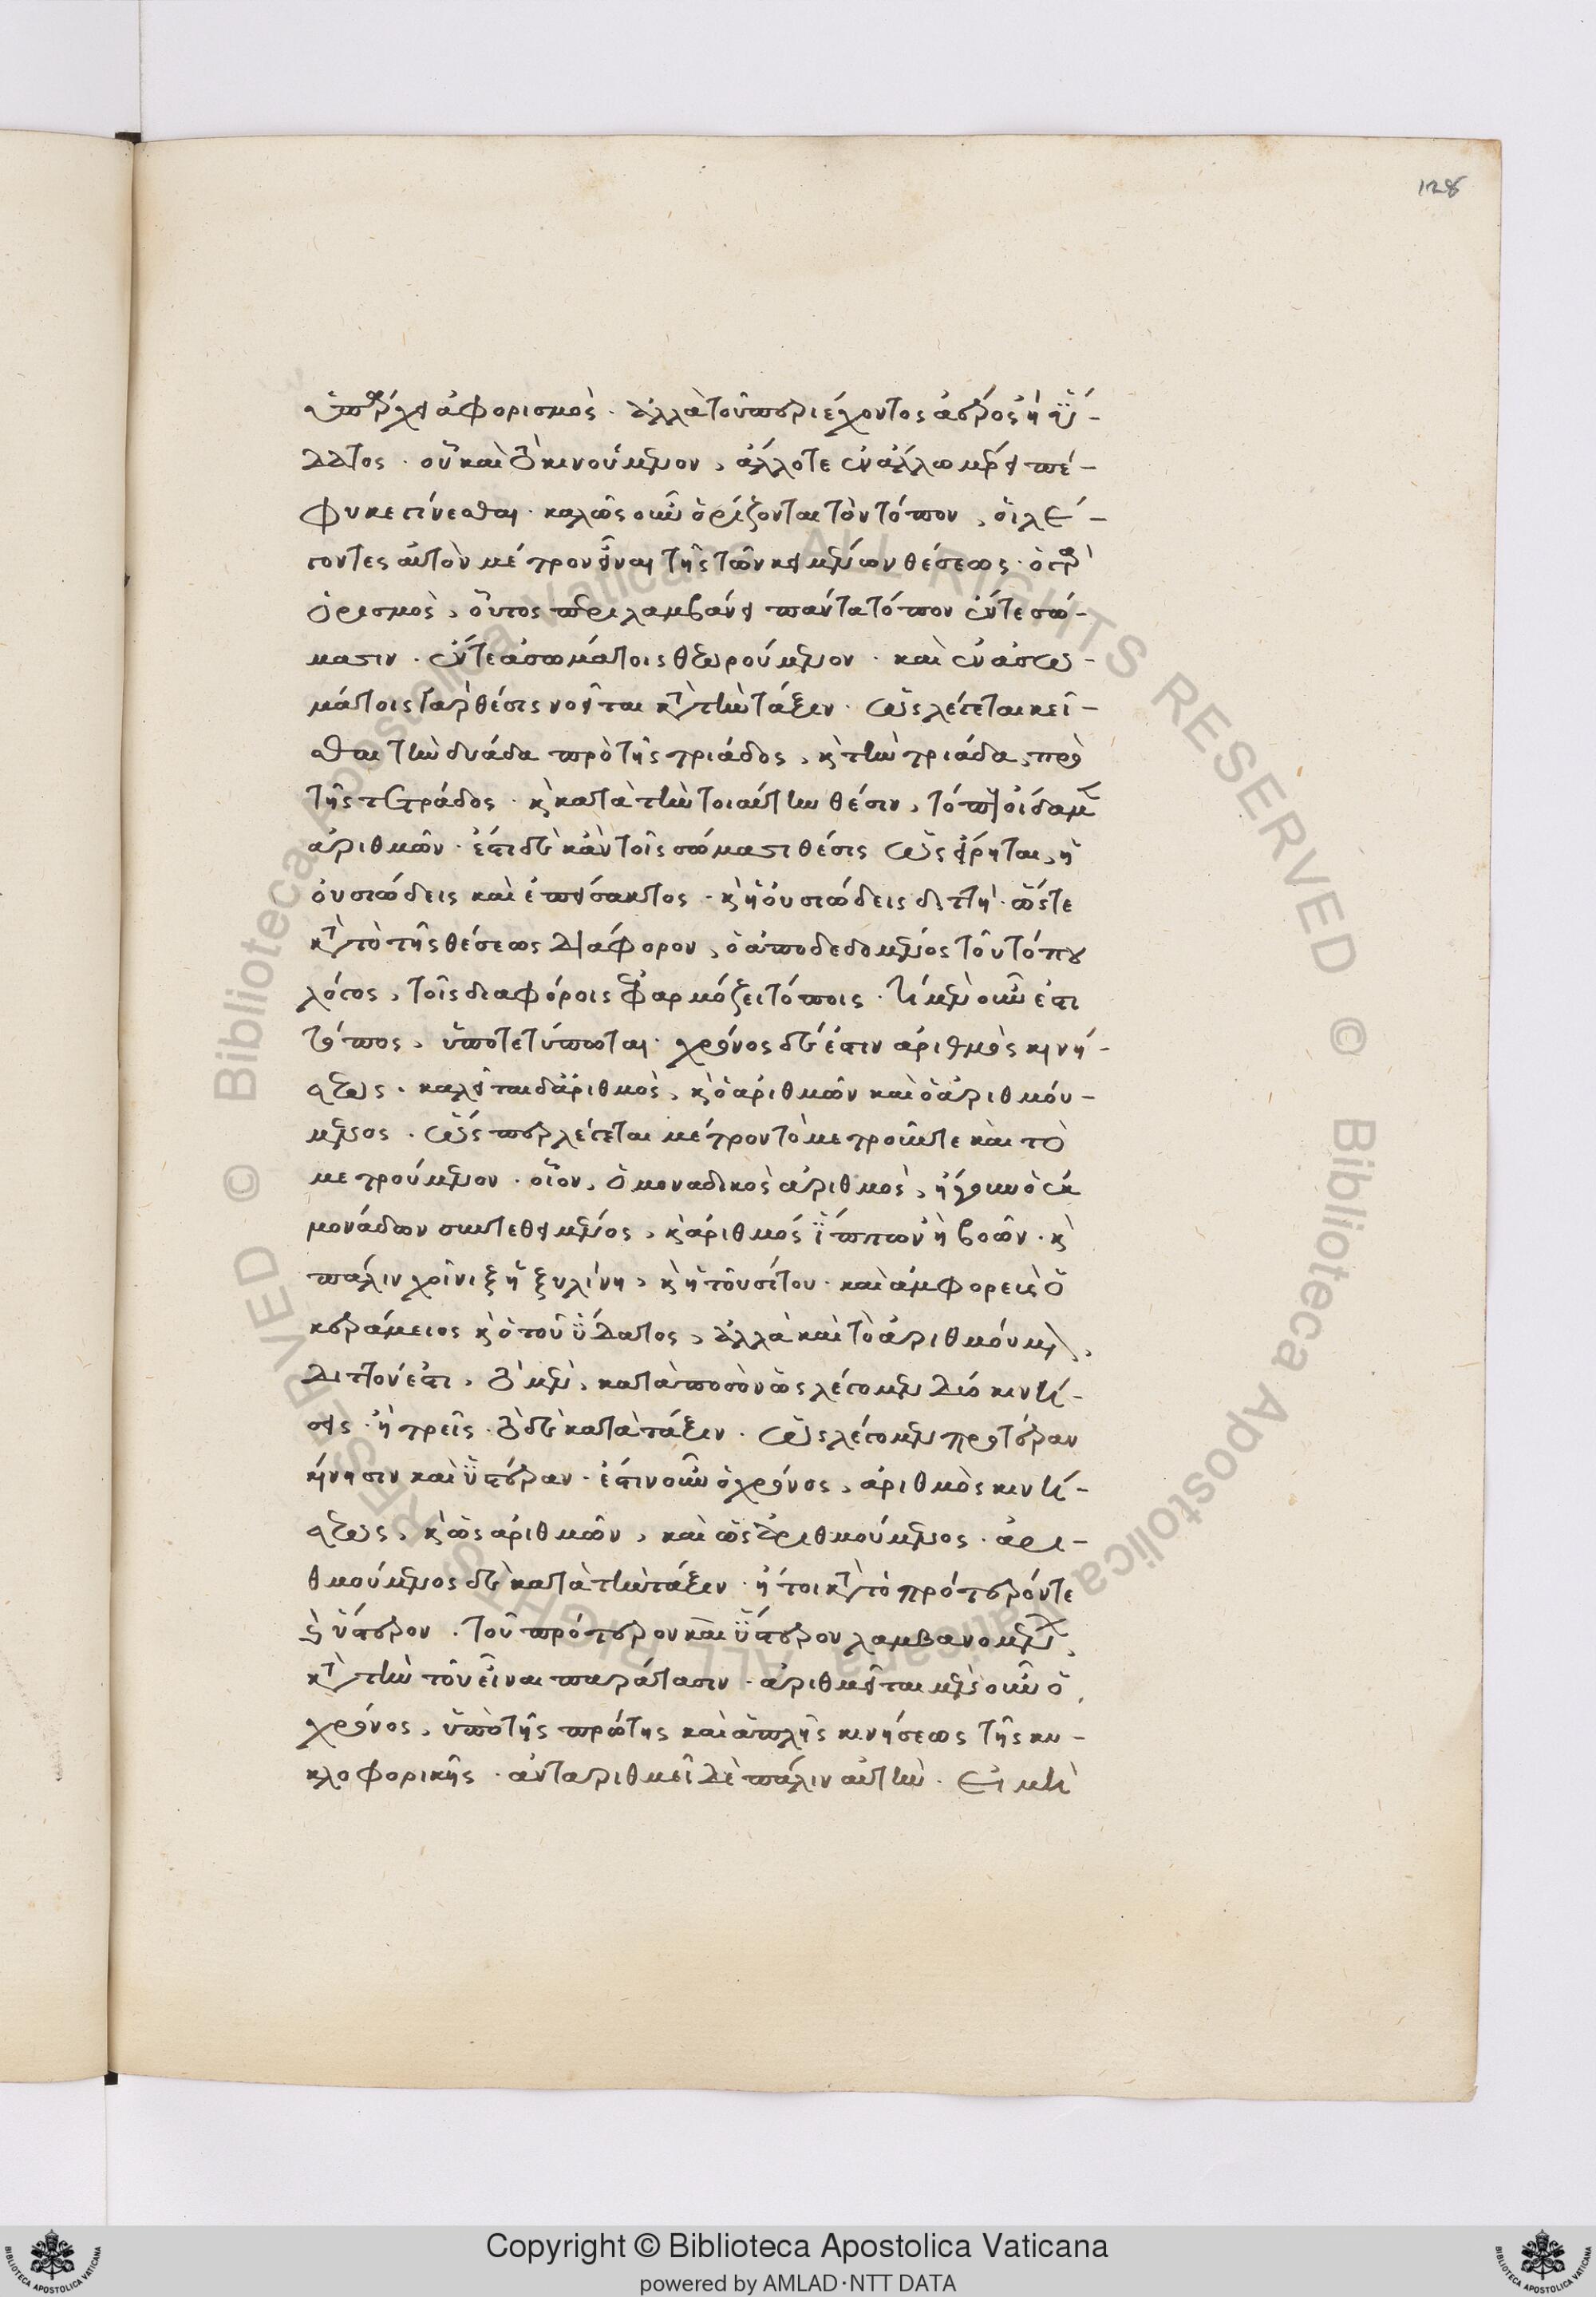 128
ὑπάρχει ἀφορισμὸς · ἀλλὰ τοῦ περιέχοντος ἀέρος ἢ ὕ-
δατος · οὗ καὶ τὸ κινούμενον, ἄλλοτε ἐν ἄλλω μέρει πέ-
φυκε γίνεσθαι · καλῶς οὖν ὁρίζονται τὸν τόπον, οἱ λέ-
γοντες αὐτὸν μέτρον εἶναι τῆς τῶν κειμένων θέσεως · ὁ γὰρ
ὁρισμὸς, οὗτος περιλαμβάνει πάντα τόπον ἔν τε σώ-
μασιν · ἔν τε ἀσωμάτοις θεωρούμενον · καὶ ἐν ἀσω-
μάτοις γὰρ θέσις νοεῖται κατὰ τὴν τάξιν · ὡς λέγεται κεῖ-
σθαι τὴν δυάδα πρὸ τῆς τριάδος, καὶ τὴν τριάδα, πρὸ
τῆς τετράδος · καὶ κατὰ τὴν τοιαύτην θέσιν, τόπον οἴδαμεν
ἀριθμῶν · ἔστι δὲ κἀν τοῖς σώμασι θέσις ὡς εἴρηται, ἡ
οὐσιώδεις καὶ ἐπείσακτος · καὶ ἡ οὐσιώδεις διττή · ὥστε
κατὰ τὸ τῆς θέσεως διάφορον, ὁ ἀποδεδομένος τοῦ τόπου
λόγος, τοῖς διαφόροις ἐφαρμόζει τόποις · τί μὲν οὖν ἐστι
τόπος, ὑποτετύπωται · χρόνος δέ ἐστιν ἀριθμὸς κινή-
σεως · καλεῖται δ᾽ ἀριθμὸς, καὶ ὁ ἀριθμῶν καὶ ὁ ἀριθμού-
μενος · ὥσπερ λέγεται μέτρον τὸ μετροῦν τε καὶ τὸ
μετρούμενον · οἷον, ὁ μοναδικὸς ἀριθμὸς, ἤγουν ὁ ἐκ
μονάδων συντεθειμένος, καὶ ἀριθμός ἵππων ἢ βοῶν · καὶ
πάλιν χοῖνιξ ἡ ξυλίνη, καὶ ἡ τοῦ σίτου · καὶ ἀμφορεὺς ὁ
κεράμειος καὶ ὁ τοῦ ὕδατος, ἀλλὰ καὶ τὸ ἀριθμούμενον,
διττόν ἐστι, τὸ μὲν, κατὰ ποσὸν ὡς λέγομεν δύο κινή-
σεις · ἢ τρεῖς · τὸ δὲ κατὰ τάξιν · ὡς λέγομεν προτέραν
κίνησιν καὶ ὑστέραν · ἔστιν οὖν ὁ χρόνος, ἀριθμὸς κινή-
σεως, καὶ ὡς ἀριθμῶν, καὶ ὡς ἀριθμούμενος · ἀρι-
θμούμενος δὲ κατὰ τὴν τάξιν · ἤτοι κατὰ τὸ πρότερόν τε
καὶ ὕστερον · τοῦ πρότερον καὶ ὕστερον λαμβανομένου,
κατὰ τὴν τοῦ εἶναι παράτασιν · ἀριθμεῖται μὲν οὖν ὁ
χρόνος, ὑπὸ τῆς πρώτης καὶ ἁπλῆς κινήσεως τῆς κυ-
κλοφορικῆς · ἀνταριθμεῖ δὲ πάλιν αὐτὴν · εἰ μὴ
© Biblioteca Apostolica Vaticana ALL RIGHTS RESERVED
© Biblioteca Apostolica Vaticana ALL RIGHTS RESERVED
Copyright © Biblioteca Apostolica Vaticana
powered by AMLAD·NTT DATA
BIBLIOTECA APOSTOLICA VATICANA
BIBLIOTECA APOSTOLICA VATICANA